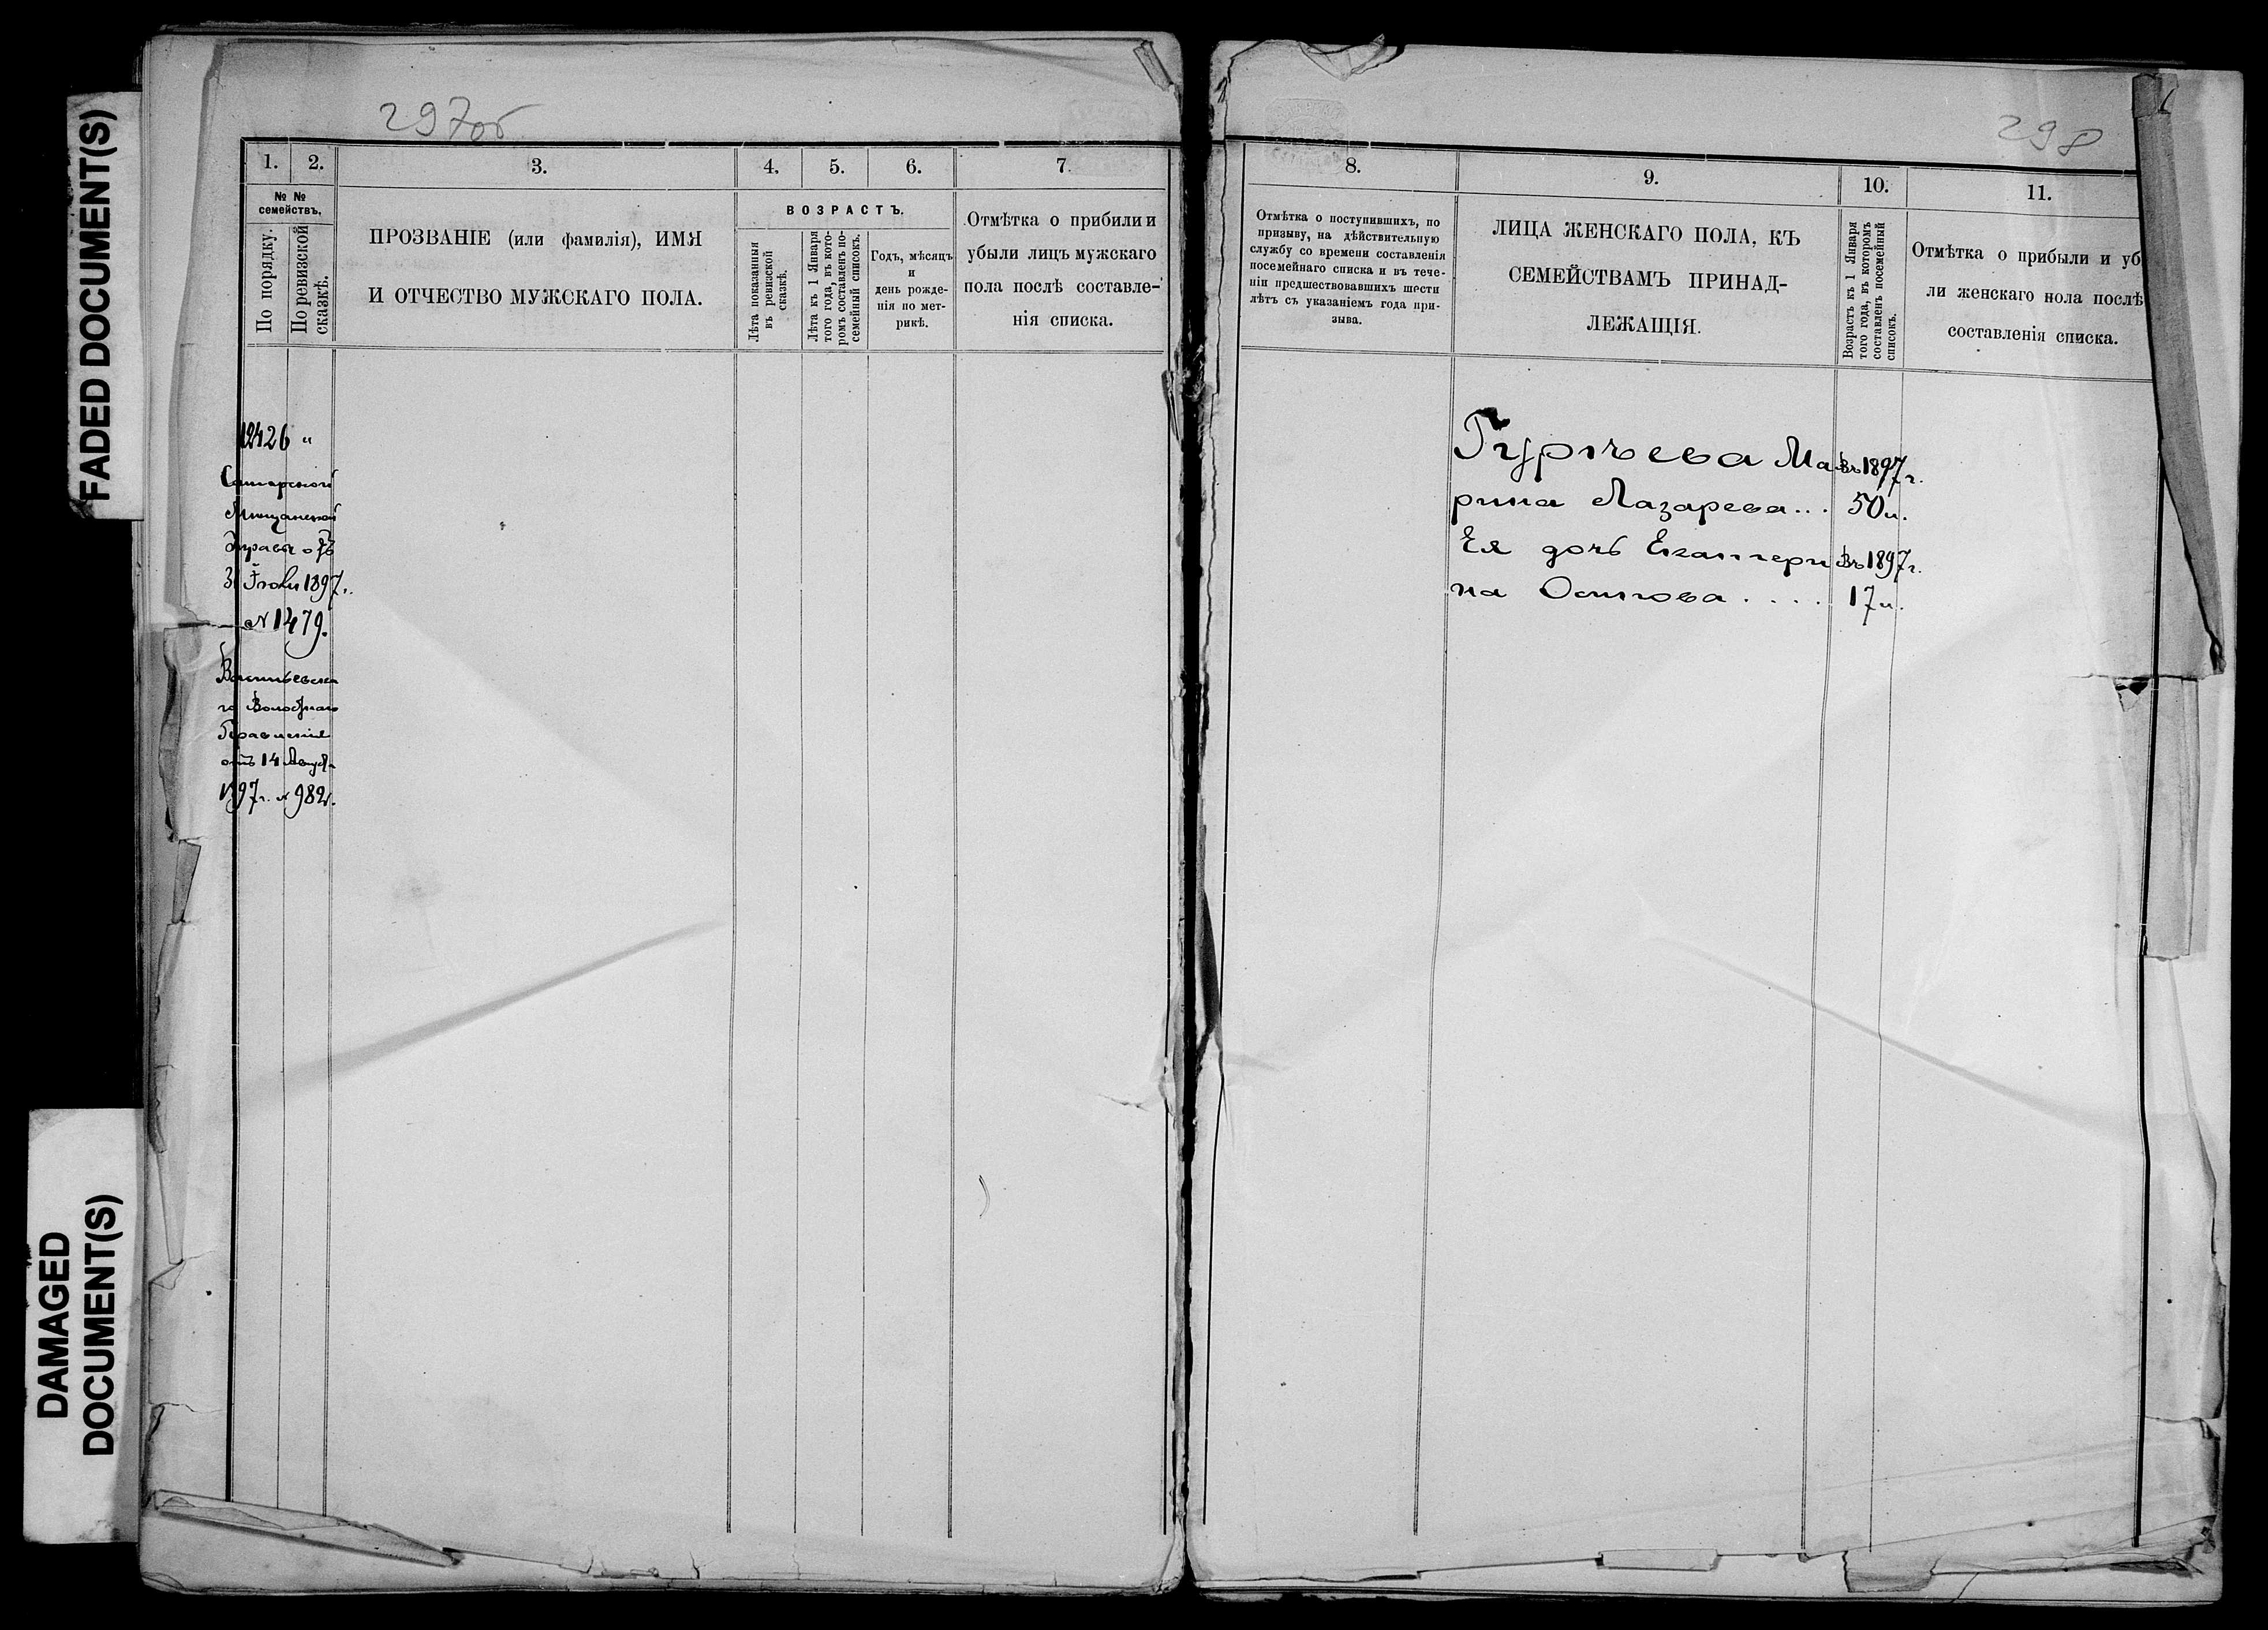 FADED DOCUMENT(S)
DAMAGED
DOCUMENT(S)
297об
1. 2. 3. 4. 5. 6. 7.
№ №
семействъ.
По порядку.
По ревизской
сказкѣ.
ПРОЗВАНІЕ (или фамилія), ИМЯ
И ОТЧЕСТВО МУЖСКАГО ПОЛА.
ВОЗРАСТЪ.
Лѣта показанныя
въ ревизской
сказкѣ.
Лѣта къ 1 Января
того года, въ кото-
ромъ составленъ по-
семейный списокъ.
Годъ, мѣсяцъ
и
день рожде-
нія по мет-
рикѣ.
Отмѣтка о прибили и
убыли лицъ мужскаго
пола послѣ составле-
нія списка.
12426 "
Самарской
Мѣщанской
Управы отъ
31 Іюля 1897 г.
№ 1479.
го Волостнаго
Правленія
отъ 14 Августа
1897 г. № 982.
298
8. 9. 10. 11.
Отмѣтка о поступившихъ, по
призыву, на дѣйствительную
службу со времени составленія
посемейнаго списка и въ тече-
ніи предшествовавшихъ шести
лѣтъ съ указаніемъ года при-
зыва.
ЛИЦА ЖЕНСКАГО ПОЛА, КЪ
СЕМЕЙСТВАМЪ ПРИНАД-
ЛЕЖАЩІЯ.
Возрастъ къ 1 Января
того года, въ которомъ
составленъ посемейный
списокъ.
Отмѣтка о прибыли и уб
ли женскаго нола послѣ
составленія списка.
Гурьева Ма въ 1897 г.
рина Лазарева... 50 л.
Ея дочь Екатери въ 1897 г.
на Осипова.... 17 л.